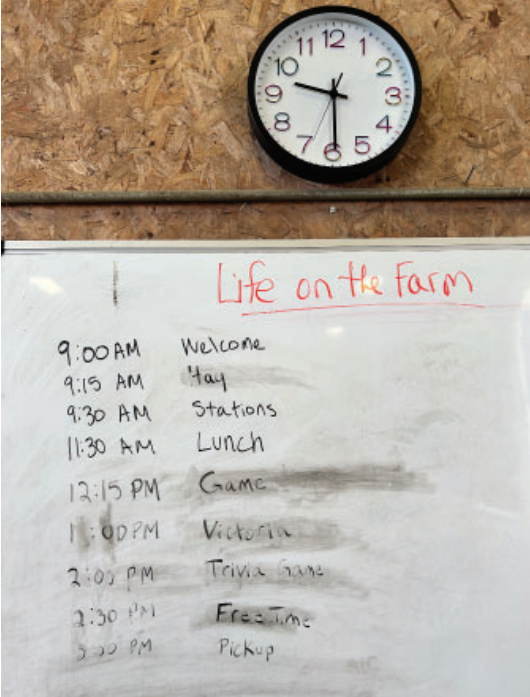 11 12 1
10 2
9 3
8 4
7 6 5
Life on the Farm
9:00 AM Welcome
9:15 AM Hay
9:30 AM Stations
11:30 AM Lunch
12:15 PM Game
1:00 PM Victoria
2:00 PM Trivia Game
2:30 PM Free Time
PM Pickup